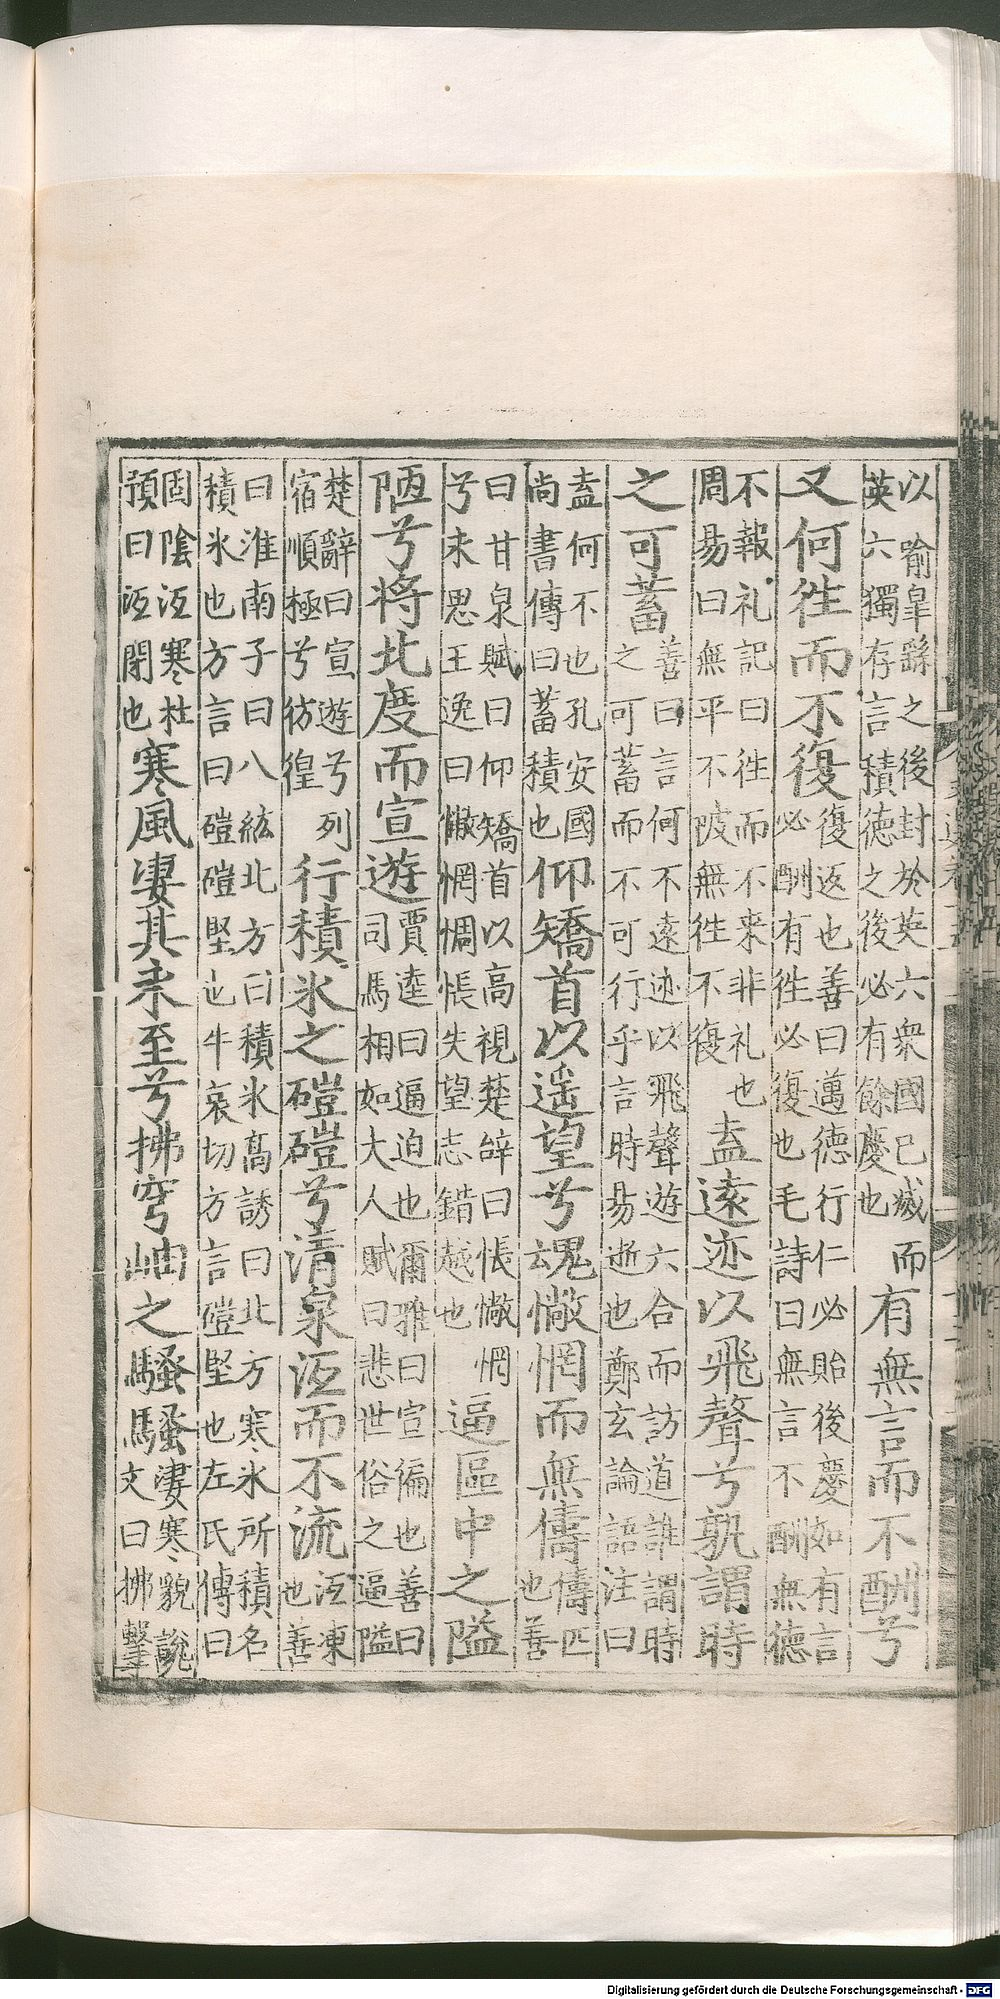 以喻臯繇之後封於英六衆國已滅而
英六獨存言積德之後必有餘慶也
有無言而不酬兮
又何徃而不復
復返也善曰邁德行仁必貽後慶如有言
必酬有徃必復也毛詩曰無言不酬無德
不報礼記曰徃而不来非礼也
周易曰無平不陂無徃不復
盍遠迹以飛聲兮孰謂時
之可蓄
善曰言何不遠迹以飛聲遊六合而訪道誰謂時
之可蓄而不可行乎言時易逝也鄭玄論語注曰
盍何不也孔安國
尚書傳曰蓄積也
仰矯首以遥望兮魂㦗惘而無儔
儔匹
也善
曰甘泉賦曰仰矯首以高視楚辞曰悵㦗惘
兮未思王逸曰㦗惘惆悵失望志錯越也
逼區中之隘
陋兮將北度而宣遊
賈逵曰逼迫也爾雅曰宣徧也善曰
司馬相如大人賦曰悲世俗之逼隘
楚辭曰宣遊兮列
宿順極兮彷徨
行積氷之磑磑兮清泉沍而不流
沍凍
也善
曰淮南子曰八紘北方曰積氷高誘曰北方寒氷所積名
積氷也方言曰磑磑堅也牛哀切方言磑堅也左氏傳曰
固隂沍寒杜
預曰沍閉也
寒風凄其来至兮拂穹岫之騷騷
凄寒貌説
文曰拂擊
Digitalisierung gefördert durch die Deutsche Forschungsgemeinschaft - DFG